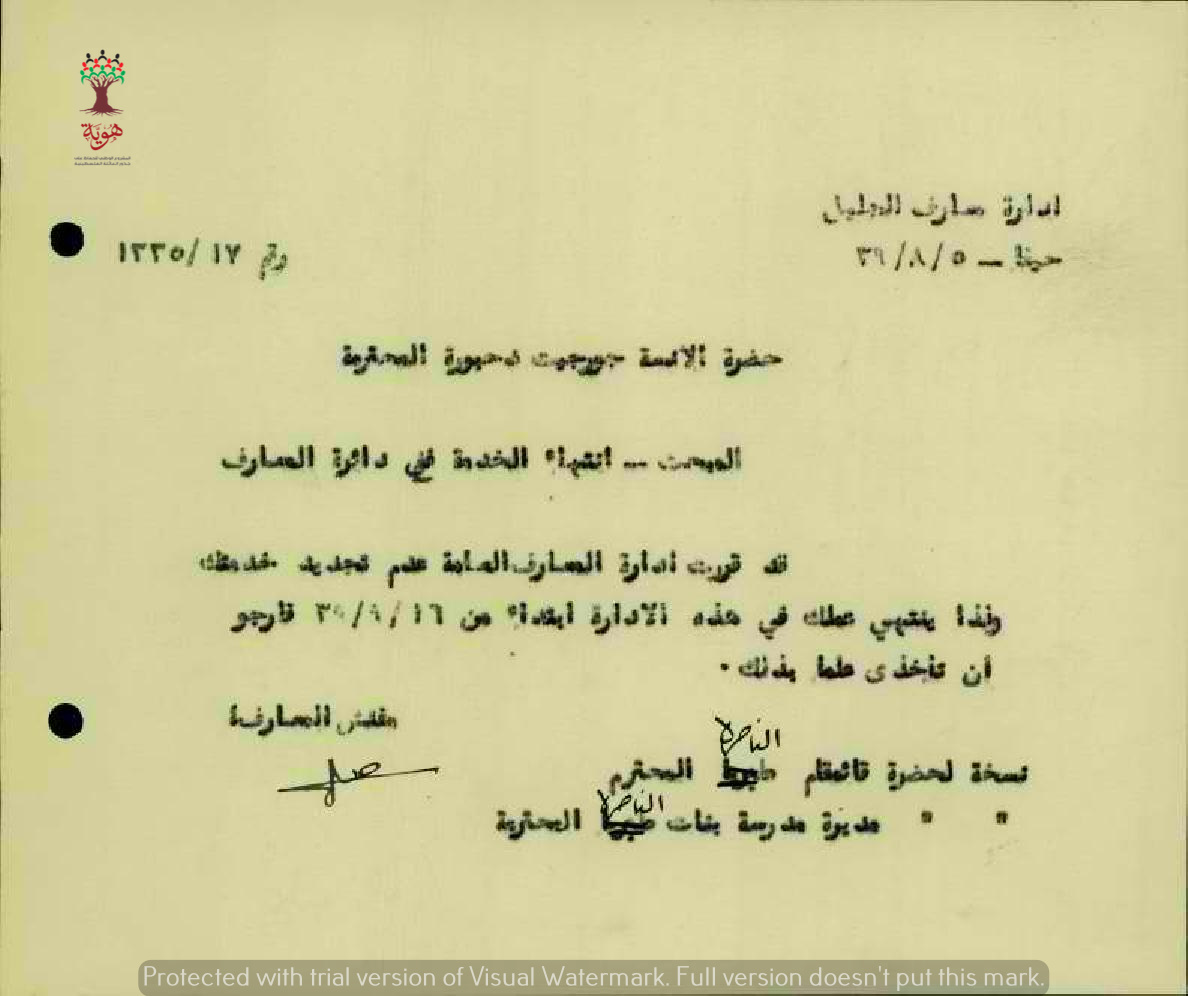 هوية
ادارة معارف الجليل
حيفا — ٣٩/٨/٥
رقم ١٧ /١٢٢٥
حضرة الانسة جورجيت دحبورة المحترمة
المبحث — انتهاء الخدمة في دائرة المعارف
قد قررت ادارة المعارف العامة عدم تجديد خدمتك
ولذا ينتهي عملك في هذه الادارة ابتداء من ٣٩/٩/١٦ فارجو
أن تأخذى علما بذلك.
مفتش المعارف
الناصرة
نسخة لحضرة قائمقام طبريا المحترم
الناصرة
" " مديرة مدرسة بنات طبريا المحترمة
Protected with trial version of Visual Watermark. Full version doesn't put this mark.